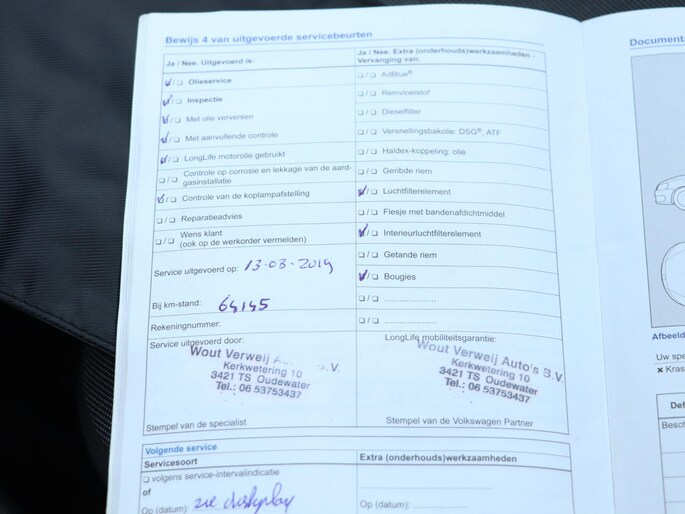 Bewijs 4 van uitgevoerde servicebeurten
Ja / Nee. Uitgevoerd is:
☑ / ☐ Olieservice
☑ / ☐ Inspectie
☑ / ☐ Met olie verversen
☑ / ☐ Met aanvullende controle
☑ / ☐ LongLife motorolie gebruikt
☐ / ☐ Controle op corrosie en lekkage van de aard-
gasinstallatie
☑ / ☐ Controle van de koplampafstelling
☐ / ☐ Reparatieadvies
☐ / ☐ Wens klant
(ook op de werkorder vermelden)
Service uitgevoerd op: 13-03-2019
Bij km-stand: 64145
Rekeningnummer:
Service uitgevoerd door:
Wout Verweij A... B.V.
Kerkwetering 10
3421 TS Oudewater
Tel.: 06 53753437
Stempel van de specialist
Ja / Nee. Extra (onderhouds)werkzaamheden -
Vervanging van:
☐ / ☐ AdBlue®
☐ / ☐ Remvloeistof
☐ / ☐ Dieselfilter
☐ / ☐ Versnellingsbakolie: DSG®, ATF
☐ / ☐ Haldex-koppeling: olie
☐ / ☐ Geribde riem
☑ / ☐ Luchtfilterelement
☐ / ☐ Flesje met bandenafdichtmiddel
☑ / ☐ Interieurluchtfilterelement
☐ / ☐ Getande riem
☑ / ☐ Bougies
☐ / ☐ ....................
☐ / ☐ ....................
LongLife mobiliteitsgarantie:
Wout Verweij Auto's B.V.
Kerkwetering 10
3421 TS Oudewater
Tel.: 06 53753437
Stempel van de Volkswagen Partner
Volgende service
Servicesoort
☐ volgens service-intervalindicatie
of
Op (datum): zie diskplay
Extra (onderhouds)werkzaamheden
Op (datum):
Document
Afbeeld
Uw spe
✖ Kras
Def
Besch